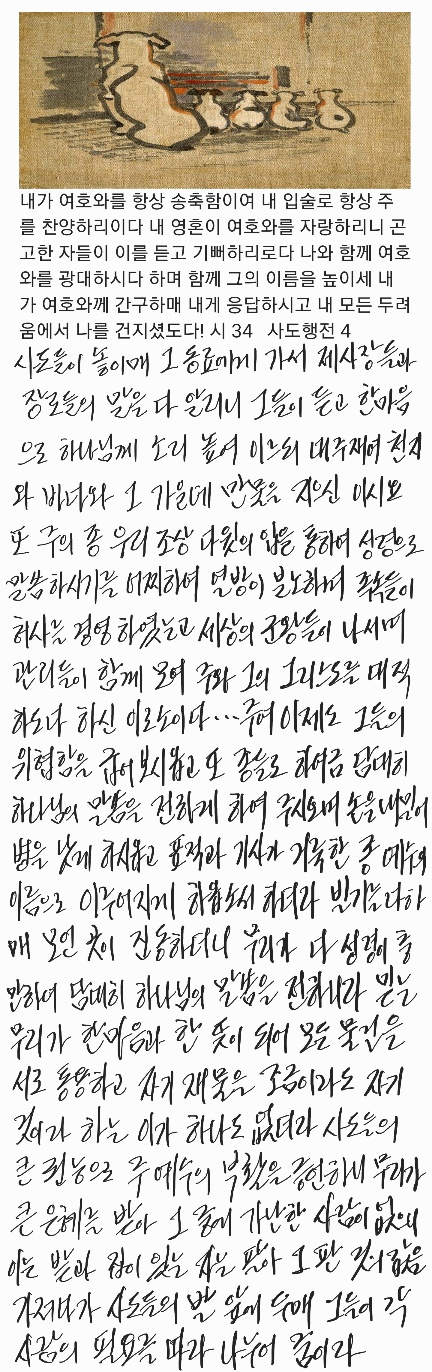 내가 여호와를 항상 송축함이여 내 입술로 항상 주
를 찬양하리이다 내 영혼이 여호와를 자랑하리니 곤
고한 자들이 이를 듣고 기뻐하리로다 나와 함께 여호
와를 광대하시다 하며 함께 그의 이름을 높이세 내
가 여호와께 간구하매 내게 응답하시고 내 모든 두려
움에서 나를 건지셨도다! 시 34 사도행전 4
사도들이 놓이매 그 동료에게 가서 제사장들과
장로들의 말을 다 알리니 그들이 듣고 한마음
으로 하나님께 소리 높여 이르되 대주재여 천지
와 바다와 그 가운데 만물을 지으신 이시요
또 주의 종 우리 조상 다윗의 입을 통하여 성령으로
말씀하시기를 어찌하여 열방이 분노하며 족속들이
허사를 경영하였는고 세상의 군왕들이 나서며
관리들이 함께 모여 주와 그의 그리스도를 대적
하도다 하신 이로소이다···주여 이제도 그들의
위협함을 굽어보시옵고 또 종들로 하여금 담대히
하나님의 말씀을 전하게 하여 주시오며 손을 내밀어
병을 낫게 하시옵고 표적과 기사가 거룩한 종 예수의
이름으로 이루어지게 하옵소서 하더라 빌기를 다하
매 모인 곳이 진동하더니 무리가 다 성령이 충
만하여 담대히 하나님의 말씀을 전하니라 믿는
무리가 한마음과 한 뜻이 되어 모든 물건을
서로 통용하고 자기 재물을 조금이라도 자기
것이라 하는 이가 하나도 없더라 사도들이
큰 권능으로 주 예수의 부활을 증언하니 무리가
큰 은혜를 받아 그 중에 가난한 사람이 없으니
이는 밭과 집이 있는 자는 팔아 그 판 것의 값을
가져다가 사도들의 발 앞에 두매 그들이 각
사람의 필요를 따라 나누어 줌이라